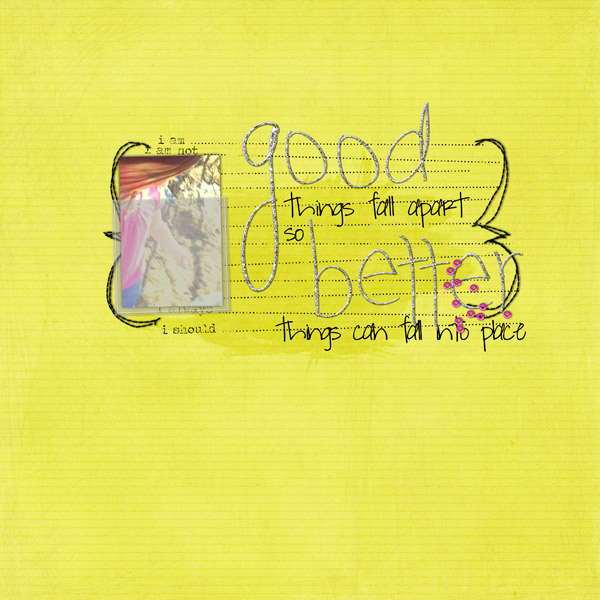 i am
i am not
good
things fall apart
so
better
i always
i should
things can fall into place